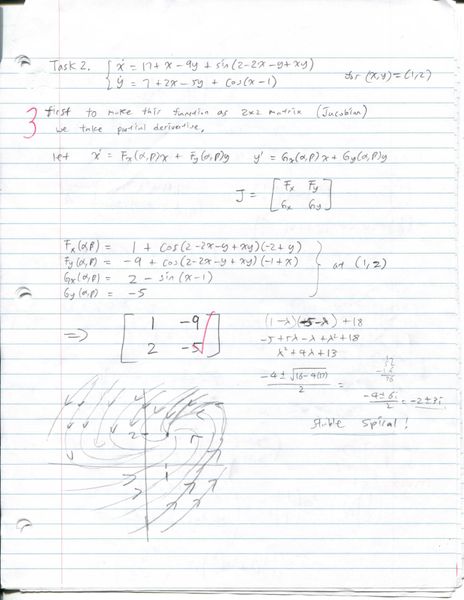 Task 2. { x' = 17 + x - 9y + sin(2-2x-y+xy)
y' = 7 + 2x - 5y + cos(x-1) for (x,y) = (1,2)
3
first to make this function as 2x2 matrix (Jacobian)
we take partial derivative,
let x' = Fx(α,β)x + Fy(α,β)y y' = Gx(α,β)x + Gy(α,β)y
J = [ Fx Fy
Gx Gy ]
Fx(α,β) = 1 + cos(2-2x-y+xy)(-2+y)
Fy(α,β) = -9 + cos(2-2x-y+xy)(-1+x)
Gx(α,β) = 2 - sin(x-1)
Gy(α,β) = -5
} at (1,2)
⇒ [ 1 -9
2 -5 ]
(1-λ)(-5-λ) + 18
-5+5λ-λ+λ²+18
λ²+4λ+13
-4 ± √16-4(13) / 2 =
-4 ± 6i / 2 = -2 ± 3i
stable spiral!
2
1